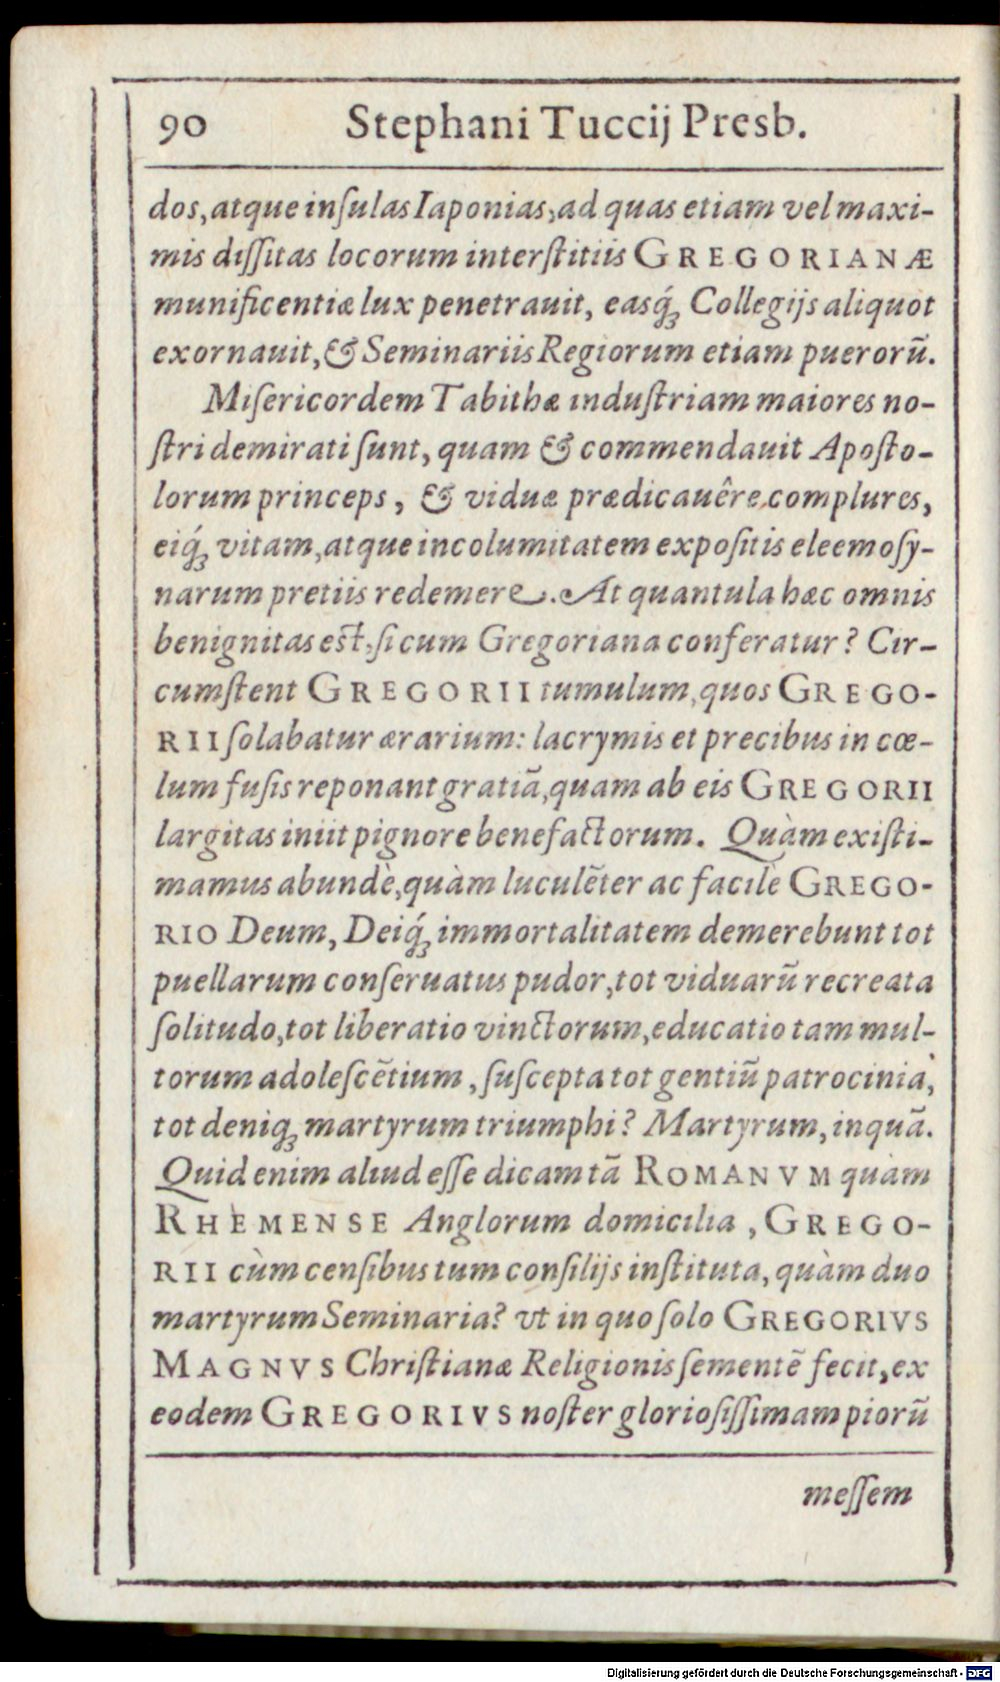 90 Stephani Tuccij Presb.
dos, atque inſulas Iaponias, ad quas etiam vel maxi-
mis diſſitas locorum interſtitiis GREGORIANÆ
munificentiæ lux penetrauit, easq́ꝫ Collegijs aliquot
exornauit, & Seminariis Regiorum etiam puerorũ.
Miſericordem Tabithæ induſtriam maiores no-
ſtri demirati ſunt, quam & commendauit Apoſto-
lorum princeps, & viduæ prædicauêre complures,
eiq́ꝫ vitam, atque incolumitatem expoſitis eleemoſy-
narum pretiis redemere. At quantula hæc omnis
benignitas eſt, ſi cum Gregoriana conferatur? Cir-
cumſtent GREGORII tumulum, quos GREGO-
RII ſolabatur ærarium: lacrymis et precibus in cœ-
lum fuſis reponant gratiã, quam ab eis GREGORII
largitas iniit pignore benefactorum. Quàm exiſti-
mamus abundè, quàm luculẽter ac facilè GREGO-
RIO Deum, Deiq́ꝫ immortalitatem demerebunt tot
puellarum conſeruatus pudor, tot viduarũ recreata
ſolitudo, tot liberatio vinctorum, educatio tam mul-
torum adoleſcẽtium, ſuſcepta tot gentiũ patrocinia,
tot deniqꝫ martyrum triumphi? Martyrum, inquã.
Quid enim aliud eſſe dicam tã ROMANVM quàm
RHEMENSE Anglorum domicilia, GREGO-
RII cùm cenſibus tum conſilijs inſtituta, quàm duo
martyrum Seminaria? vt in quo ſolo GREGORIVS
MAGNVS Chriſtianæ Religionis ſementẽ fecit, ex
eodem GREGORIVS noſter glorioſiſſimam piorũ
meſſem
Digitalisierung gefördert durch die Deutsche Forschungsgemeinschaft - DFG